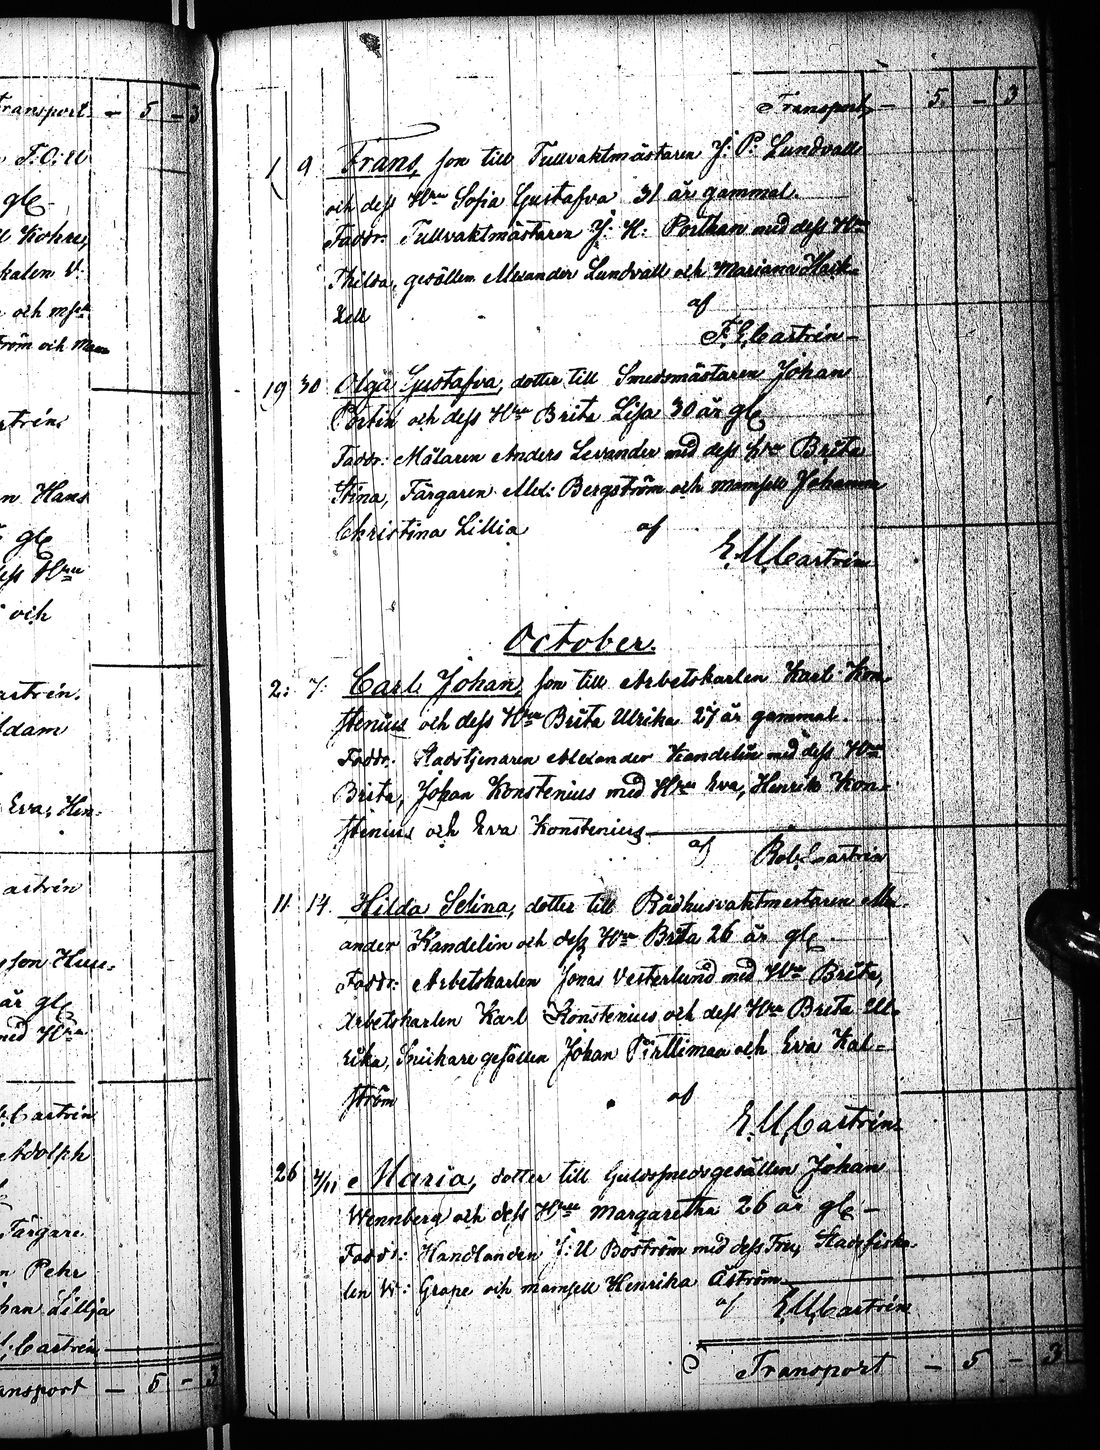 Transport - 5 - 3
T. C. U
gl
Kohre,
kalen V.
och
ström och
strén.
n Hans
gl
dess H:ru
och
astrén.
Adam
Eva, Hen-
astrén
son Hen-
år gl
med H:ru
Castrén
Adolph
Färgare
n Pehr
han Lillja
Castrén
ansport - 5 - 3
Transport - 5. - 3
1 9 Frans, son till Tullvaktmästaren J. P. Lundvall
och dess H:ru Sofia Gustafva 31 år gammal.
Faddr: Tullvaktmästaren J. H. Porthan med dess H:ru
Thilda, gesällen Alexander Lundvall och Mariana Hack-
zell af
F. E. Castrén-
19 30 Olga Gustafva, dotter till Smedsmästaren Johan
Portin och dess H:ru Brita Lisa 30 år gl
Faddr: Målaren Anders Levander med dess h:ru Brita
Stina, Färgaren Alex: Bergström och mamsell Johanna
Christina Lillia af
E. U. Castrén
October.
2: 7: Carl Johan, son till Arbetskarlen Karl Kon-
stenius och dess H:ru Brita Ulrika 27 år gammal.
Faddr. Stadstjenaren Alexander Kandelin med dess H:ru
Brita, Johan Konstenius med H:ru Eva, Henrik Kon-
stenius och Eva Konstenius
af Rob. Castrén
11 14. Hilda Selina, dotter till Rådhusvaktmestaren Alex-
ander Kandelin och dess H:ru Brita 26 år gl
Faddr: Arbetskarlen Jonas Vesterlund med H:ru Brita,
Arbetskarlen Karl Konstenius och dess H:ru Brita Ul-
rika, Snickaregesällen Johan Pirttimaa och Eva Kal-
ström af
E. U. Castrén
26 4/11 Maria, dotter till Guldsmedsgesällen Johan
Wennberg och dess H:ru Margaretha 26 år gl -
Faddr: Handlanden J: U Boström med dess Fru, Stadsfiska-
len W: Grape och mamsell Henrika Åström
af E. U. Castrén
Transport - 5 - 3